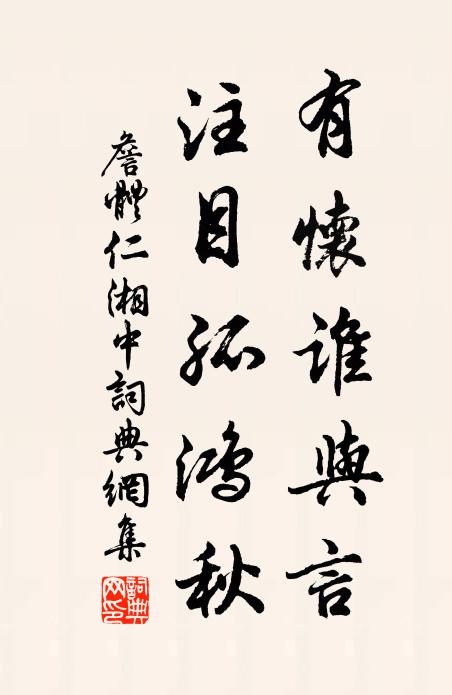 有懷誰與言
注目孤鴻秋
詹體仁湘中詞典網集
詞典
网印